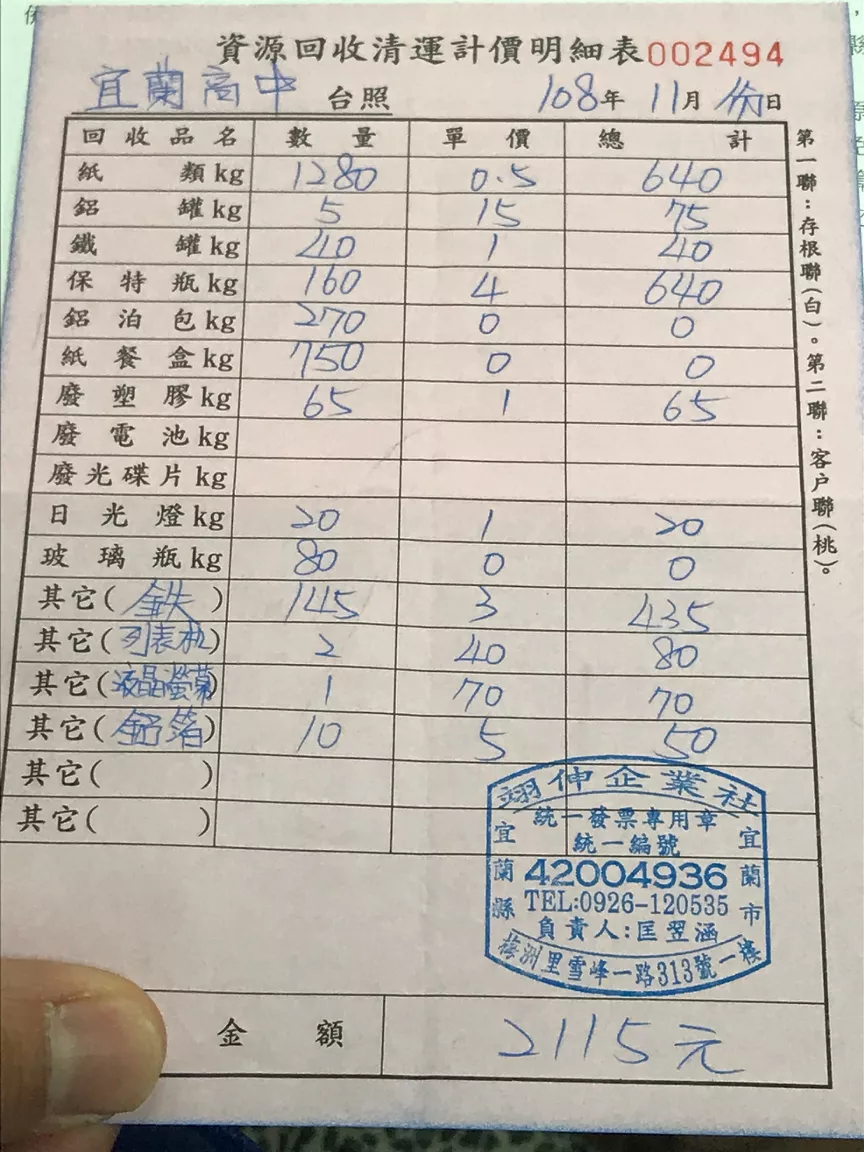 資源回收清運計價明細表 002494
宜蘭高中 台照 108年 11月 份日
回收品名 數量 單價 總計
紙類kg 1280 0.5 640
鋁罐kg 5 15 75
鐵罐kg 40 1 40
保特瓶kg 160 4 640
鋁泊包kg 270 0 0
紙餐盒kg 750 0 0
廢塑膠kg 65 1 65
廢電池kg
廢光碟片kg
日光燈kg 20 1 20
玻璃瓶kg 80 0 0
其它(鉄) 145 3 435
其它(列表机) 2 40 80
其它(液晶螢幕) 1 70 70
其它(鋁箔) 10 5 50
其它( )
其它( )
金額 2115元
第一聯:存根聯(白)。第二聯:客户聯(桃)。
翊伸企業社
統一發票專用章
統一編號
42004936
TEL:0926-120535
負責人:匡翌涵
宜蘭縣
宜蘭市
梅洲里雪峰一路313號一樓